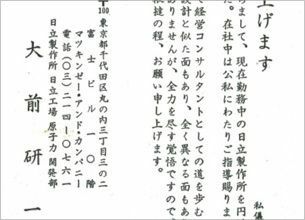 私儀
上げます
らまして、現在勤務中の日立製作所を円
た。在社中は公私にわたりご指導賜りま
て経営コンサルタントとしての道を歩む
設計と似た面もあり、全く異なる面もあ
ありませんが、全力を尽す覚悟ですので、
撻の程、お願い申し上げます。
〒100
東京都千代田区丸の内三丁目三の二
富士ビル一〇階
マッキンゼー・アンド・カンパニー
電話(〇三)二一四-〇七六一
日立製作所 日立工場 原子力開発部
大前研一